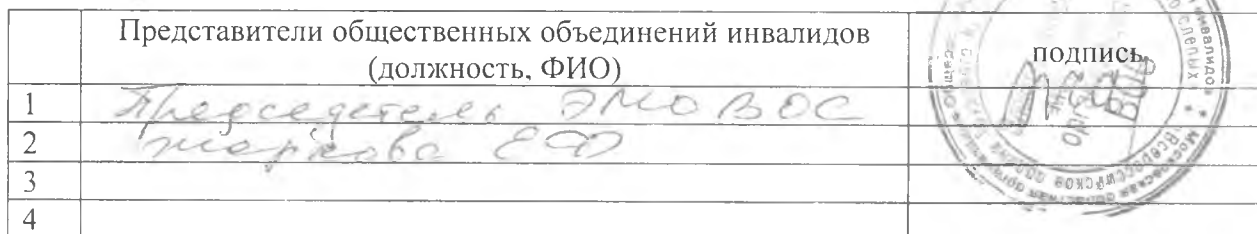 Представители общественных объединений инвалидов
(должность, ФИО)
подпись
1 Председатель ЭМО ВОС
2 Жаркова ЕФ
3
4